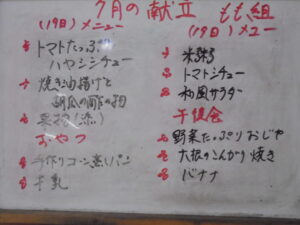 7月の献立 もも組
(19日) メニュー
トマトたっぷり
ハヤシシチュー
焼き油揚げと
胡瓜の酢の物
果物(添)
おやつ
手作りコーン蒸しパン
牛乳
(19日) メニュー
米粥
トマトシチュー
和風サラダー
午後食
野菜たっぷりおじや
大根のこんがり焼き
バナナ